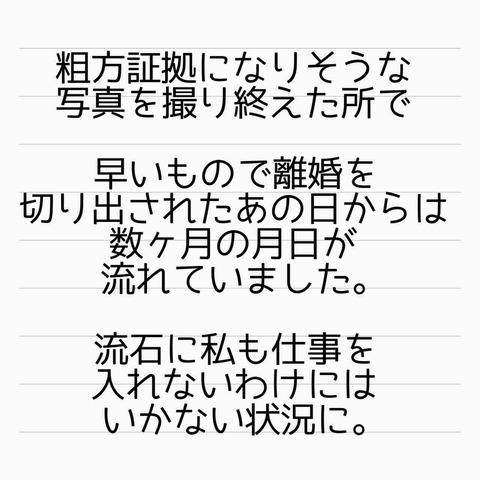 粗方証拠になりそうな
写真を撮り終えた所で
早いもので離婚を
切り出されたあの日からは
数ヶ月の月日が
流れていました。
流石に私も仕事を
入れないわけには
いかない状況に。